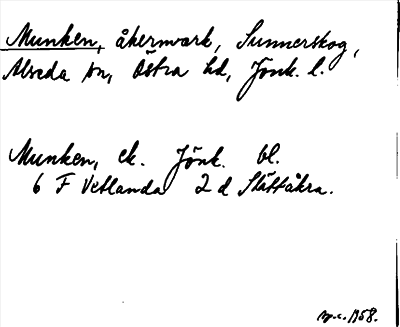 Munken, åkermark, Sunnerskog,
Alseda sn, Östra hd, Jönk. l.
Munken, ek. Jönk. bl.
6 F Vetlanda 2 d Slättåkra.
1958.